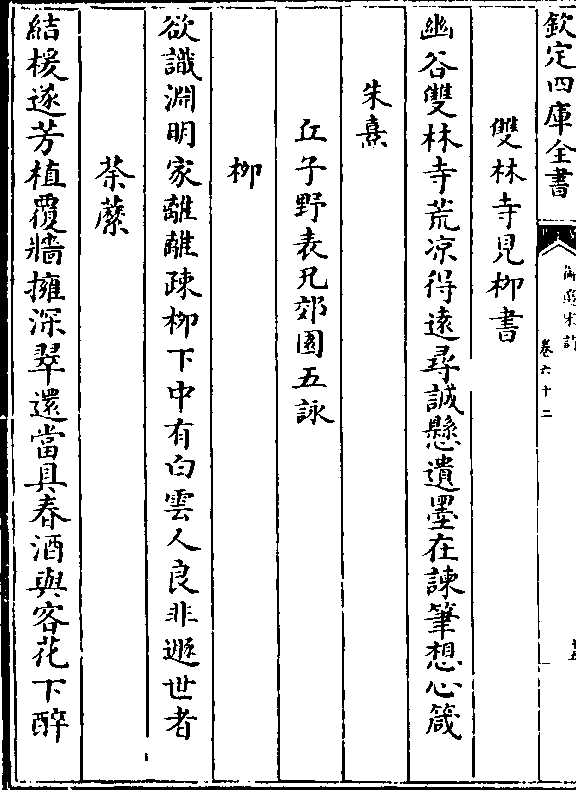 欽定四庫全書
御選宋詩
卷六十二
雙林寺見柳書
幽谷雙林寺荒凉得逺尋誠懸遺墨在諫筆想心箴
朱熹
丘子野表兄郊園五詠
柳
欲識淵明家離離疎柳下中有白雲人良非遯世者
荼䕷
結援遂芳植覆牆擁深翠還當具春酒與客花下醉